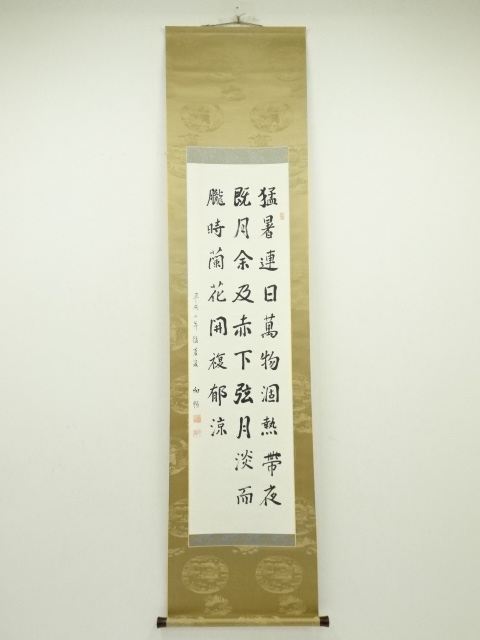 猛暑連日萬物涸熱帶夜
既月余及赤下弦月淡而
朧時蘭花開複郁涼